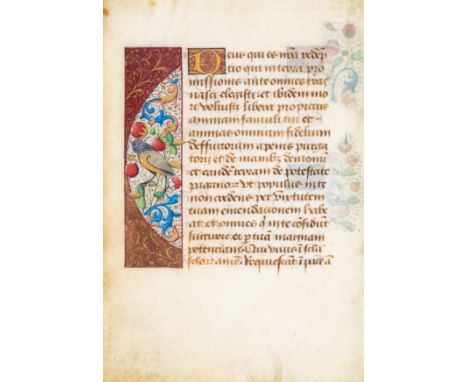 Deus qui es nr̃a redẽp
tio qui in terra pro
missionis ante omnes
nasci elegisti: et ibidem mo
ri voluisti libera propitius
animam famuli tui et
animas omnium fidelium
defunctorum a penis purga
torii et de manibꝰ demonũ
et eandẽ terram de potestate
Vt populus in te
non credens per virtutem
tuam emendationem habe
at et omnes qͥ in te cõfidũt
et ꝑ tuã magnam
potentiam. Qui viuis ĩ scla
sclorꝫ amẽ. Requiescãt ĩ pace ã